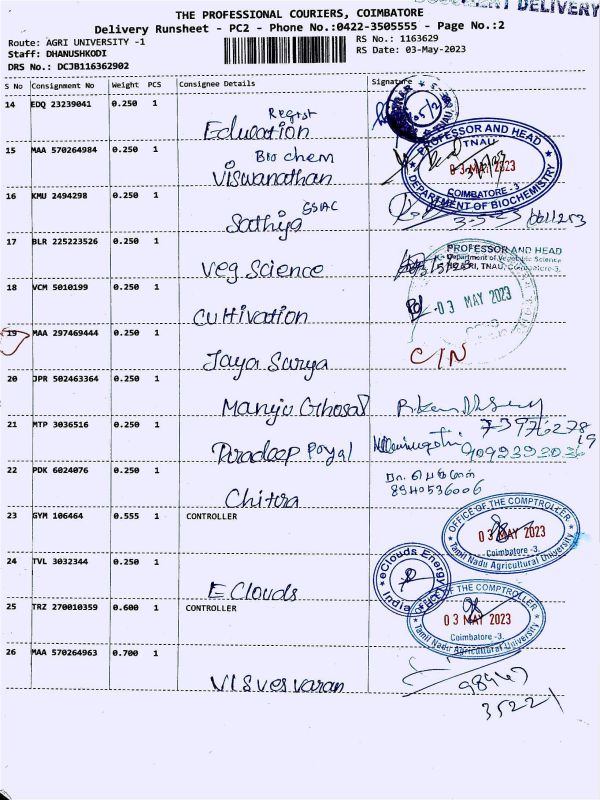 DOCUMENT DELIVERY
THE PROFESSIONAL COURIERS, COIMBATORE
Delivery Runsheet - PC2 - Phone No.:0422-3505555 - Page No.:2
Route: AGRI UNIVERSITY -1
RS No.: 1163629
Staff: DHANUSHKODI
RS Date: 03-May-2023
DRS No.: DCJB116362902
S No Consignment No Weight PCS Consignee Details Signature
14 EDQ 23239041 0.250 1
Regist
Education
15 MAA 570264984 0.250 1
Bio chem
Viswanathan
PROFESSOR AND HEAD
TNAU
03 MAY 2023
COIMBATORE - 3
DEPARTMENT OF BIOCHEMISTRY
16 KMU 2494298 0.250 1
SSAC
Sathiya
3-5-23
17 BLR 225223526 0.250 1
Veg Science
PROFESSOR AND HEAD
Department of Vegetable Science
TNAU, Coimbatore-3.
18 VCM 5010199 0.250 1
Cultivation
03 MAY 2023
19 MAA 297469444 0.250 1
Jaya Surya
C/N
20 JPR 502463364 0.250 1
Manju Ghosal
21 MTP 3036516 0.250 1
Pradeep Poyal
22 PDK 6024076 0.250 1
Chitra
8940536006
23 GYM 106464 0.555 1 CONTROLLER
OFFICE OF THE COMPTROLLER
03 MAY 2023
Coimbatore -3.
Tamil Nadu Agricultural University
24 TVL 3032344 0.250 1
E Clouds
eClouds Energy
India
25 TRZ 270010359 0.600 1 CONTROLLER
OF THE COMPTROLLER
03 MAY 2023
Coimbatore -3.
Tamil Nadu Agricultural University
26 MAA 570264963 0.700 1
Visvesvaran
98947
35221